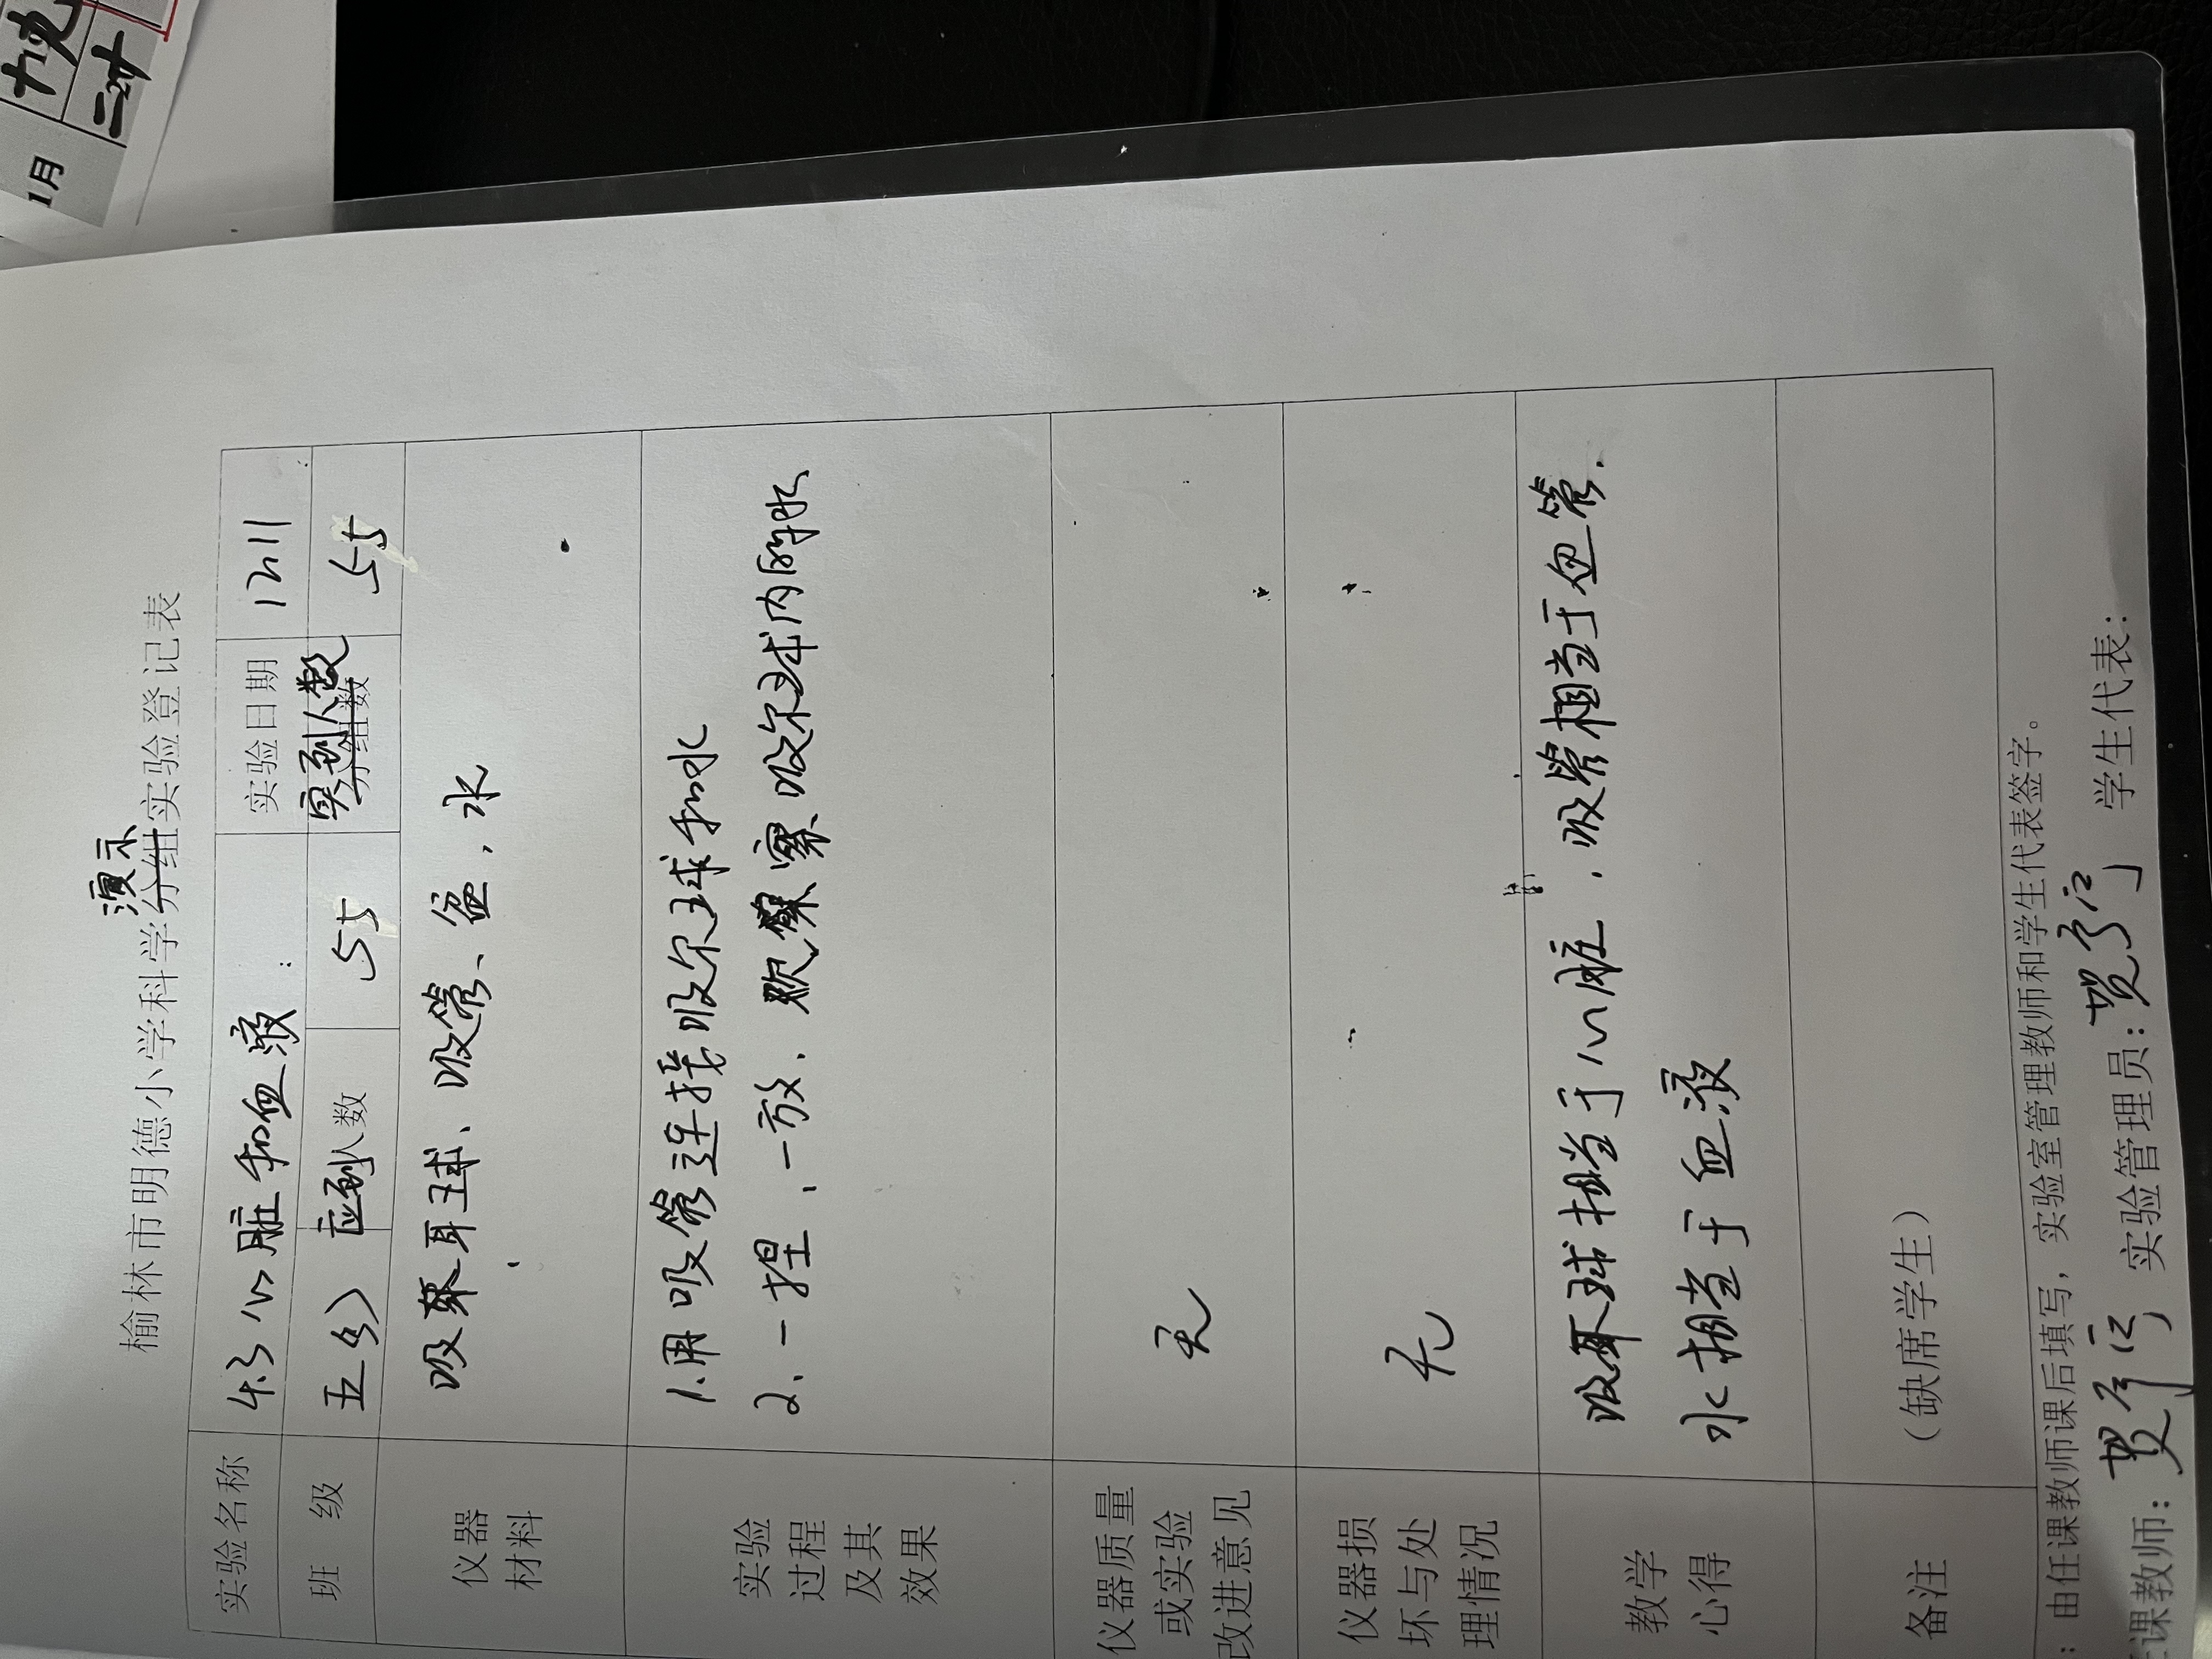 十完
二
1月
榆林市明德小学科学演示实验登记表
实验名称 4.3 心脏和血液 实验日期 1211
班 级 五(3) 应到人数 55 实到人数 55
仪器
材料
吸耳球、吸管、盆、水
实验
过程
及其
效果
1.用吸管连接吸尔球和水
2、一捏、一放、观察吸尔球内的水
仪器质量
或实验
改进意见
无
仪器损
坏与处
理情况
无
教学
心得
吸耳球相当于心脏，吸管相当于血管.
水相当于血液
备注
（缺席学生）
：由任课教师课后填写，实验室管理教师和学生代表签字。
课教师： 实验管理员： 学生代表：